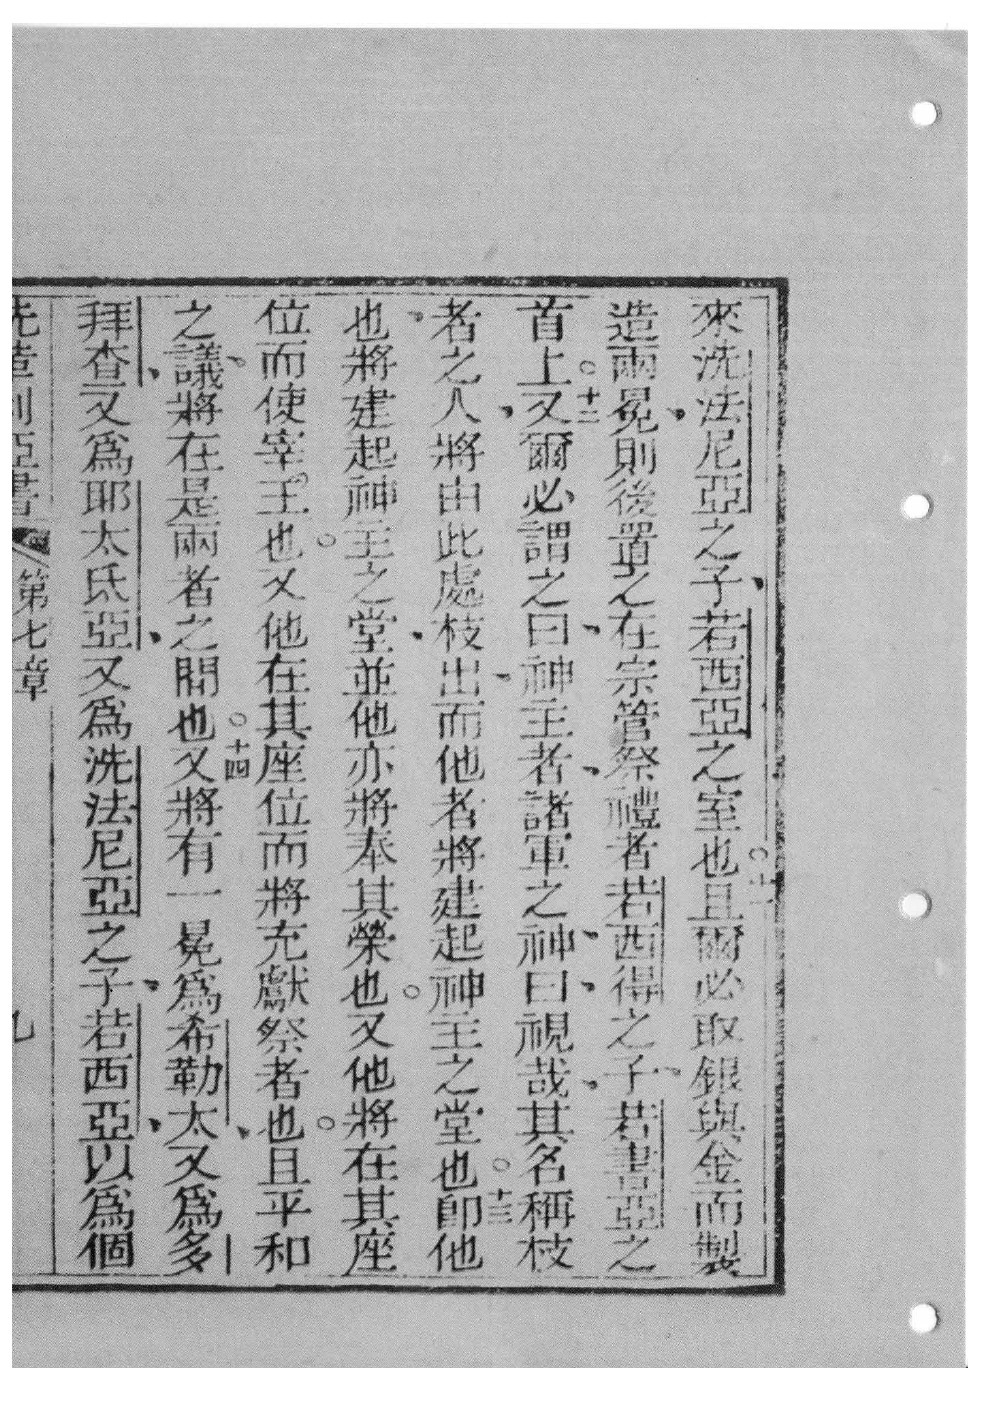 來洗法尼亞之子若西亞之室也○十一且爾必取銀與金而製
造兩冕則後置之在宗管祭禮者若西得之子若書亞之
首上○十二又爾必謂之曰神主者諸軍之神曰視哉其名稱枝
者之人將由此處枝出而他者將建起神主之堂也○十三卽他
也將建起神主之堂並他亦將奉其榮也○又他將在其座
位而使宰王也○又他在其座位而將充獻祭者也○且平和
之議將在是兩者之間也○十四又將有一冕爲希勒太又爲多
拜查又爲耶太氐亞又爲洗法尼亞之子若西亞以爲個
先造利亞書 第七章 九